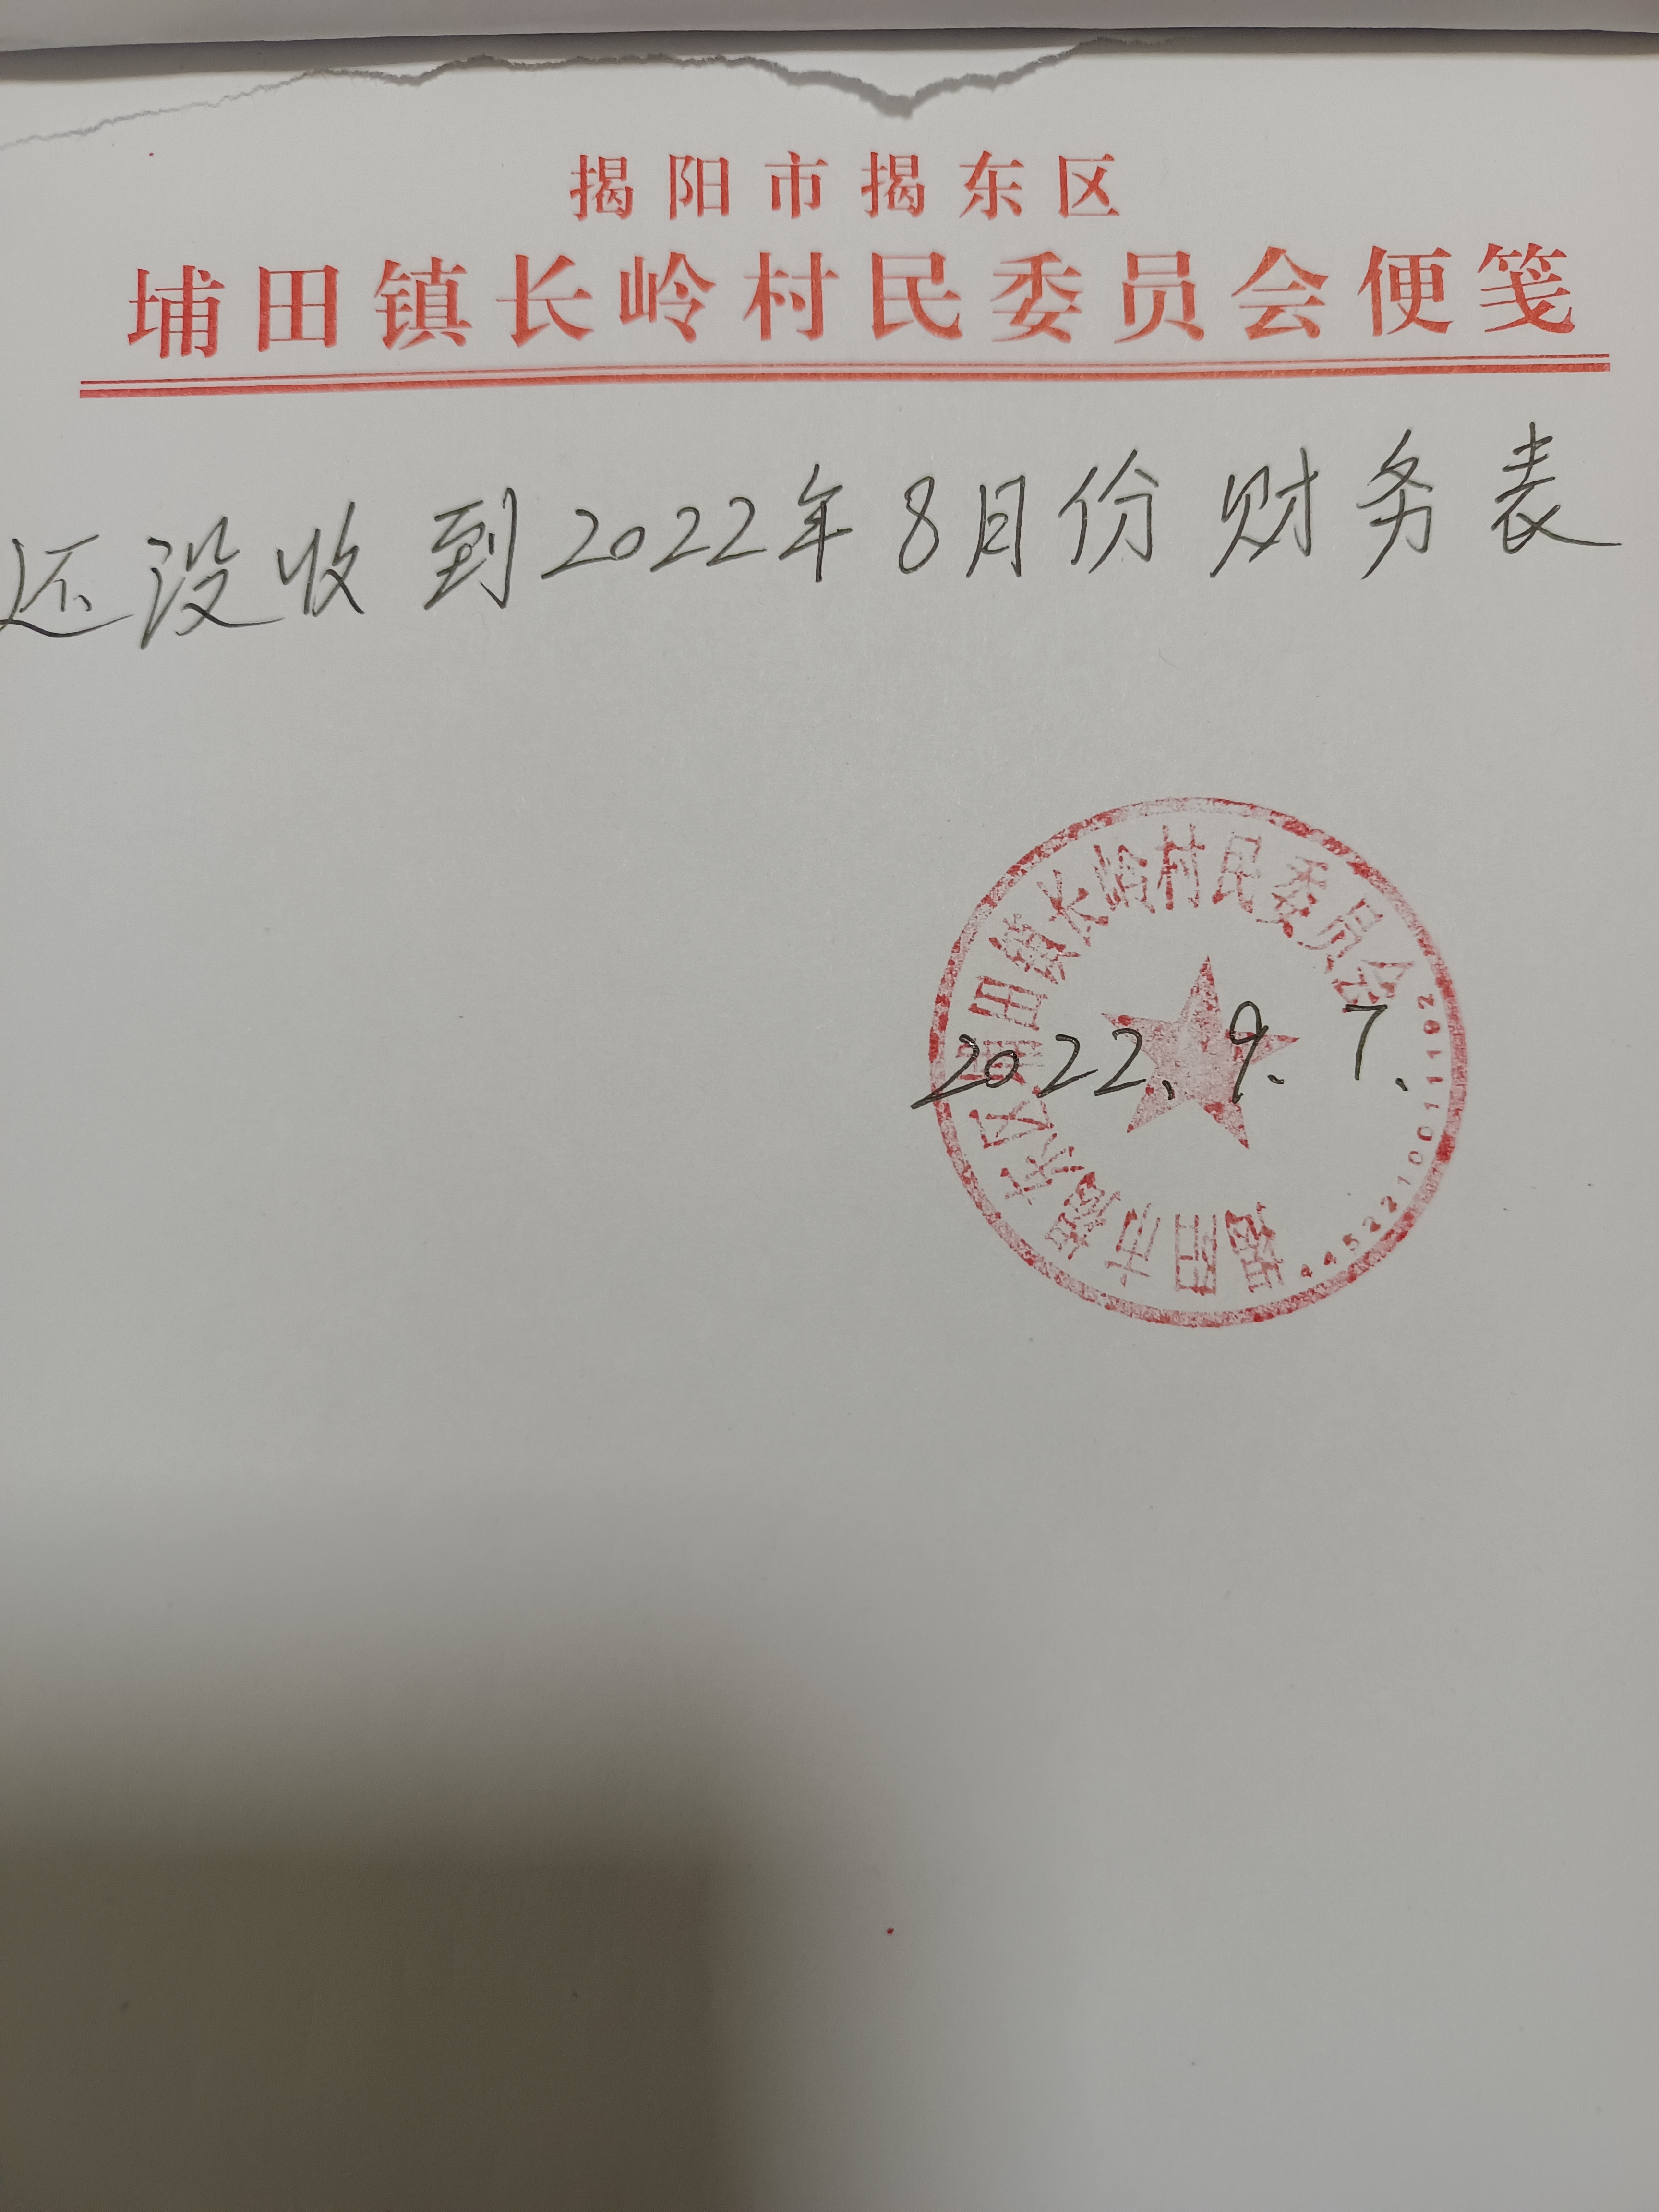 揭阳市揭东区
埔田镇长岭村民委员会便笺
还没收到2022年8月份财务表
揭阳市揭东区埔田镇长岭村民委员会
2022.9.7.
4452210011192